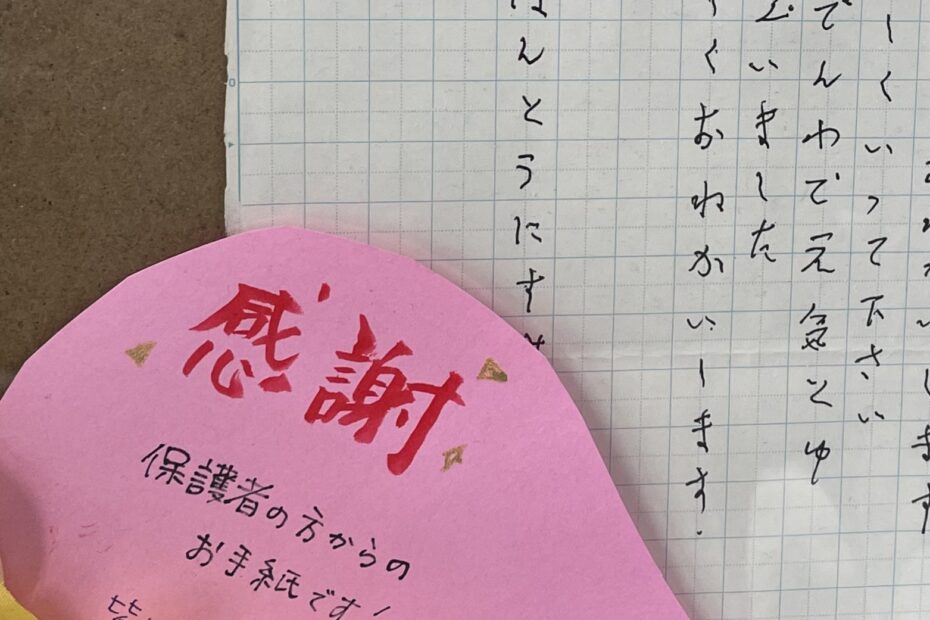 いします
しくいって下さい
でんわで元気とゆ
いました
くおねがいします.
ほんとうにす
感謝
保護者の方からの
お手紙です!